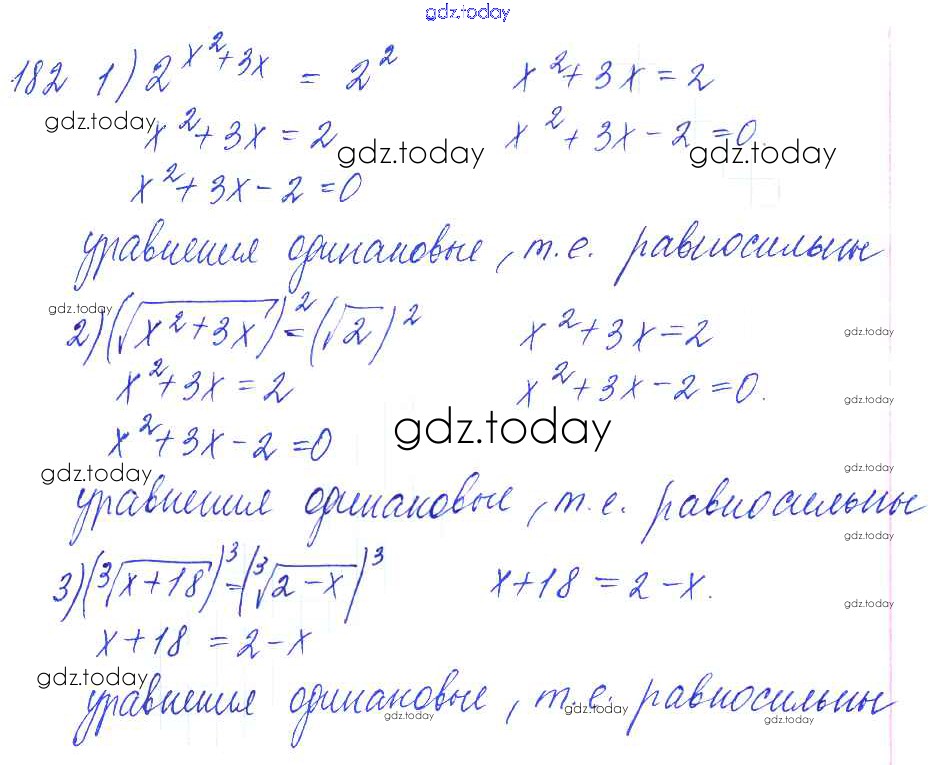 gdz.today
182 1) 2^{x^2+3x} = 2^2    x^2+3x=2
gdz.today x^2+3x=2 gdz.today    x^2+3x-2=0. gdz.today
x^2+3x-2=0
уравнения одинаковые, т.е. равносильны
gdz.today
2) (√(x^2+3x))^2=(√2)^2    x^2+3x=2 gdz.today
x^2+3x=2    x^2+3x-2=0. gdz.today
x^2+3x-2=0 gdz.today
gdz.today gdz.today
уравнения одинаковые, т.е. равносильны
gdz.today
3) (∛(x+18))^3=(∛(2-x))^3    x+18=2-x. gdz.today
x+18=2-x
gdz.today
уравнения одинаковые, т.е. равносильны
gdz.today gdz.today gdz.today